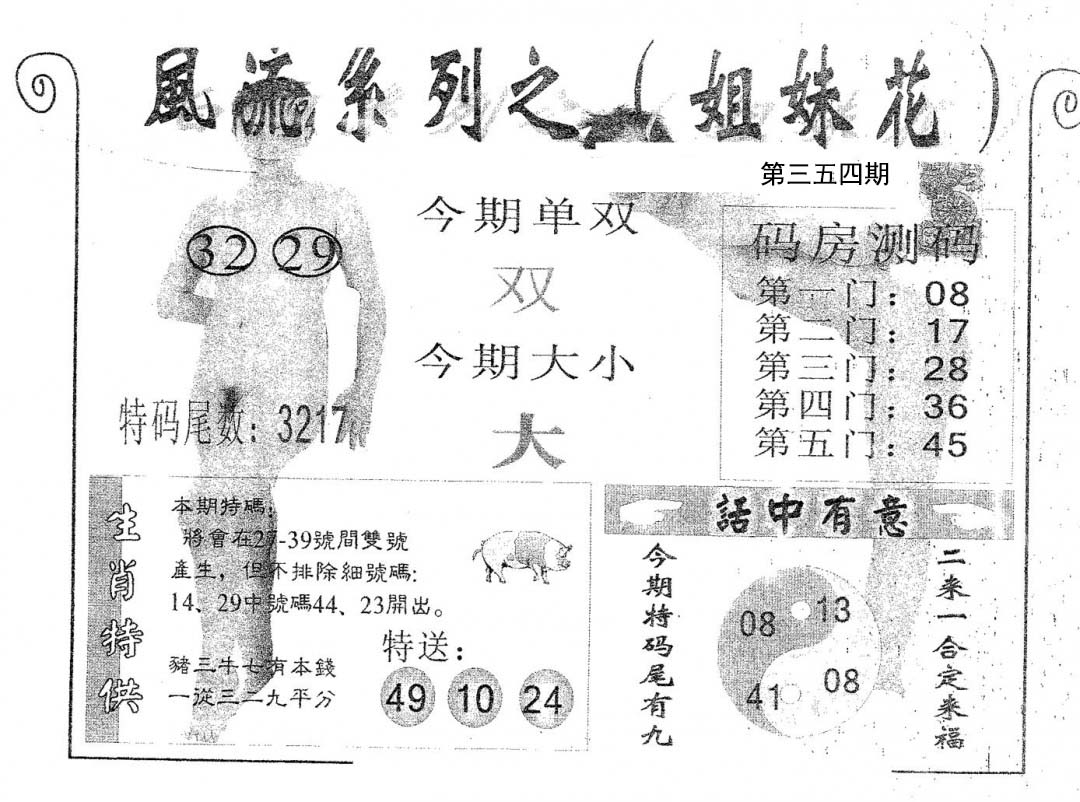 風流系列之（姐妹花）
第三五四期
32 29
今期单双
双
今期大小
大
特码尾数：3217
码房测码
第一门：08
第二门：17
第三门：28
第四门：36
第五门：45
生肖特供
本期特碼：
將會在27-39號間雙號
產生，但不排除細號碼：
14、29中號碼44、23開出。
豬三牛七有本錢
一從三二九平分
特送：
49 10 24
話中有意
今期特码尾有九
08 13
41 08
二来一合定来福